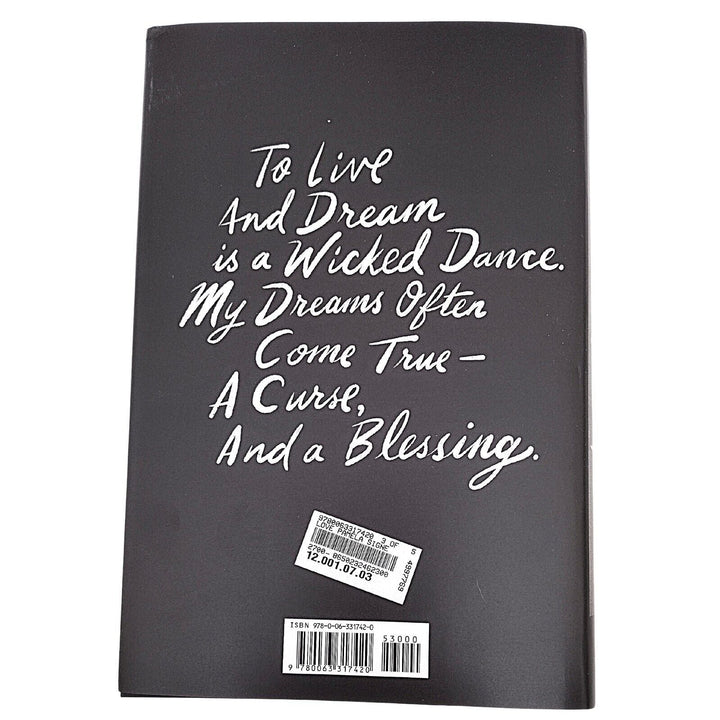 To Live
And Dream
is a Wicked Dance.
My Dreams Often
Come True—
A Curse,
And a Blessing.
9780063317420 3 OF 5
LOVE PAMELA SIGNE
2700- 8650232462300
12.001.07.03
4997769
ISBN 978-0-06-331742-0
53000
9 780063 317420